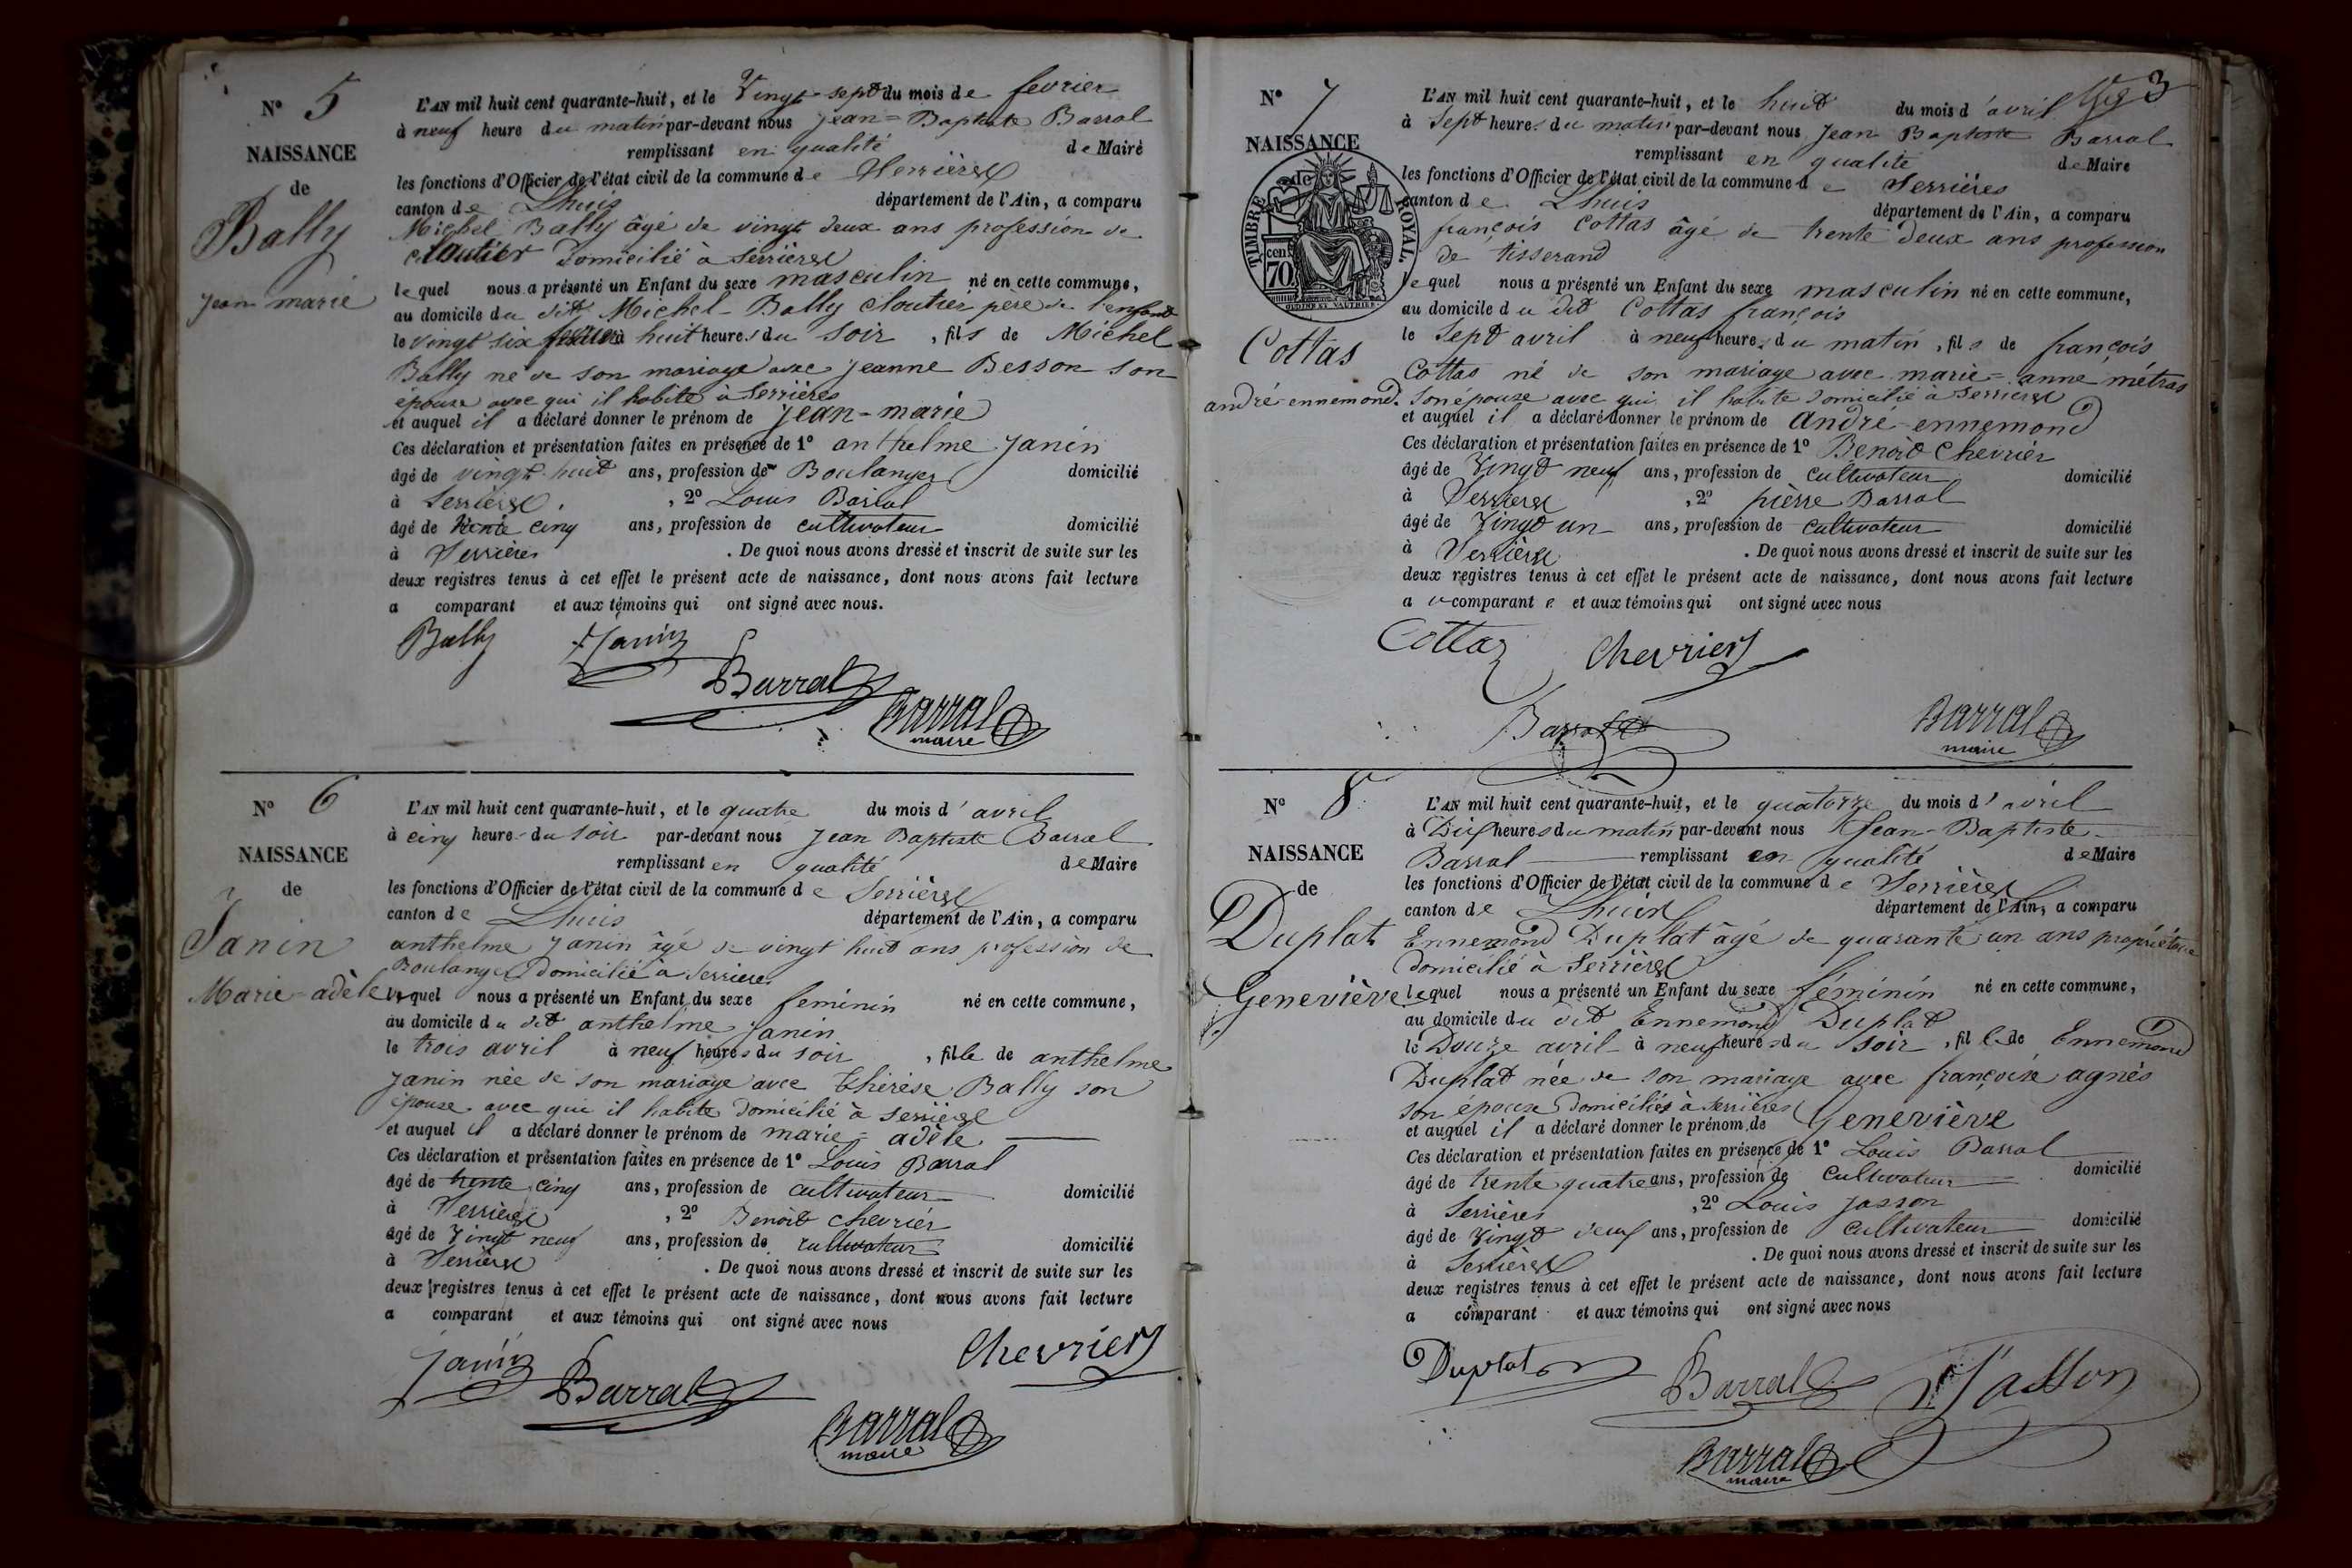 N° 5
NAISSANCE
de
Bally
jean marie
L'AN mil huit cent quarante-huit, et le Vingt sept du mois de fevrier
à neuf heure du matin par-devant nous jean = Baptiste Barral
remplissant en qualité de Maire
les fonctions d'Officier de l'état civil de la commune de Serrières
canton de Lhuis département de l'Ain, a comparu
Michel Bally âgé de vingt deux ans profession de
cloutier domicilié à Serrières
lequel nous a présenté un Enfant du sexe masculin né en cette commune,
au domicile du dit Michel Bally cloutier pere de l'enfant
le vingt six à huit heures du soir, fils de Michel
Bally né de son mariage avec jeanne Besson son
épouse avec qui il habite à Serrières
et auquel il a déclaré donner le prénom de jean-marie
Ces déclaration et présentation faites en présence de 1° anthelme janin
âgé de vingt huit ans, profession de Boulanger domicilié
à Serrières, 2° Louis Barral
âgé de trente cinq ans, profession de cultivateur domicilié
à Serrières. De quoi nous avons dressé et inscrit de suite sur les
deux registres tenus à cet effet le présent acte de naissance, dont nous avons fait lecture
a comparant et aux témoins qui ont signé avec nous.
Bally Janin
Barral
Barral
maire
N° 6
NAISSANCE
de
Janin
Marie-adèle
L'AN mil huit cent quarante-huit, et le quatre du mois d'avril
à cinq heure du soir par-devant nous jean Baptiste Barral
remplissant en qualité de Maire
les fonctions d'Officier de l'état civil de la commune de Serrières
canton de Lhuis département de l'Ain, a comparu
anthelme janin âgé de vingt huit ans profession de
Boulanger domicilié à Serrieres
lequel nous a présenté un Enfant du sexe feminin né en cette commune,
au domicile du dit anthelme janin
le trois avril à neuf heures du soir, fille de anthelme
janin née de son mariage avec thérèse Bally son
épouse avec qui il habite domicilié à serrières
et auquel il a déclaré donner le prénom de marie = adèle
Ces déclaration et présentation faites en présence de 1° Louis Barral
âgé de trente cinq ans, profession de cultivateur domicilié
à Serrières, 2° Benoit chevrier
âgé de Vingt neuf ans, profession de cultivateur domicilié
à Serrières. De quoi nous avons dressé et inscrit de suite sur les
deux registres tenus à cet effet le présent acte de naissance, dont nous avons fait lecture
a comparant et aux témoins qui ont signé avec nous
Janin Chevrier
Barral
Barral
maire
3
N° 7
NAISSANCE
de
TIMBRE ROYAL
70 cen
Cottas
andré-ennemond.
L'AN mil huit cent quarante-huit, et le huit du mois d'avril
à Sept heures du matin par-devant nous jean Baptiste Barral
remplissant en qualité de Maire
les fonctions d'Officier de l'état civil de la commune de Serrières
canton de Lhuis département de l'Ain, a comparu
françois Cottas âgé de trente deux ans profession
de tisserand
lequel nous a présenté un Enfant du sexe masculin né en cette commune,
au domicile du dit Cottas françois
le Sept avril à neuf heures du matin, fils de françois
Cottas né de son mariage avec marie = anne métras
son épouse avec qui il habite domicilié à Serrières
et auquel il a déclaré donner le prénom de andré-ennemond
Ces déclaration et présentation faites en présence de 1° Benoit Chevrier
âgé de Vingt neuf ans, profession de cultivateur domicilié
à Serrières, 2° pierre Barral
âgé de Vingt un ans, profession de cultivateur domicilié
à Serrières. De quoi nous avons dressé et inscrit de suite sur les
deux registres tenus à cet effet le présent acte de naissance, dont nous avons fait lecture
a comparant et aux témoins qui ont signé avec nous
Cottaz Chevrier
Barral
Barral
maire
N° 8
NAISSANCE
de
Duplat
Geneviève
L'AN mil huit cent quarante-huit, et le quatorze du mois d'avril
à Dix heures du matin par-devant nous Jean-Baptiste
Barral remplissant en qualité de Maire
les fonctions d'Officier de l'état civil de la commune de Serrières
canton de Lhuis département de l'Ain, a comparu
Ennemond Duplat âgé de quarante un ans propriétaire
domicilié à Serrières
lequel nous a présenté un Enfant du sexe féminin né en cette commune,
au domicile du dit Ennemond Duplat
le Douze avril à neuf heures du soir, fille de Ennemond
Duplat née de son mariage avec françoise agnès
son épouse domiciliés à Serrières
et auquel il a déclaré donner le prénom de Geneviève
Ces déclaration et présentation faites en présence de 1° Louis Barral
âgé de trente quatre ans, profession de cultivateur domicilié
à Serrières, 2° Louis jasson
âgé de Vingt ans, profession de cultivateur domicilié
à Serrières. De quoi nous avons dressé et inscrit de suite sur les
deux registres tenus à cet effet le présent acte de naissance, dont nous avons fait lecture
a comparant et aux témoins qui ont signé avec nous
Duplat Barral Jasson
Barral
maire